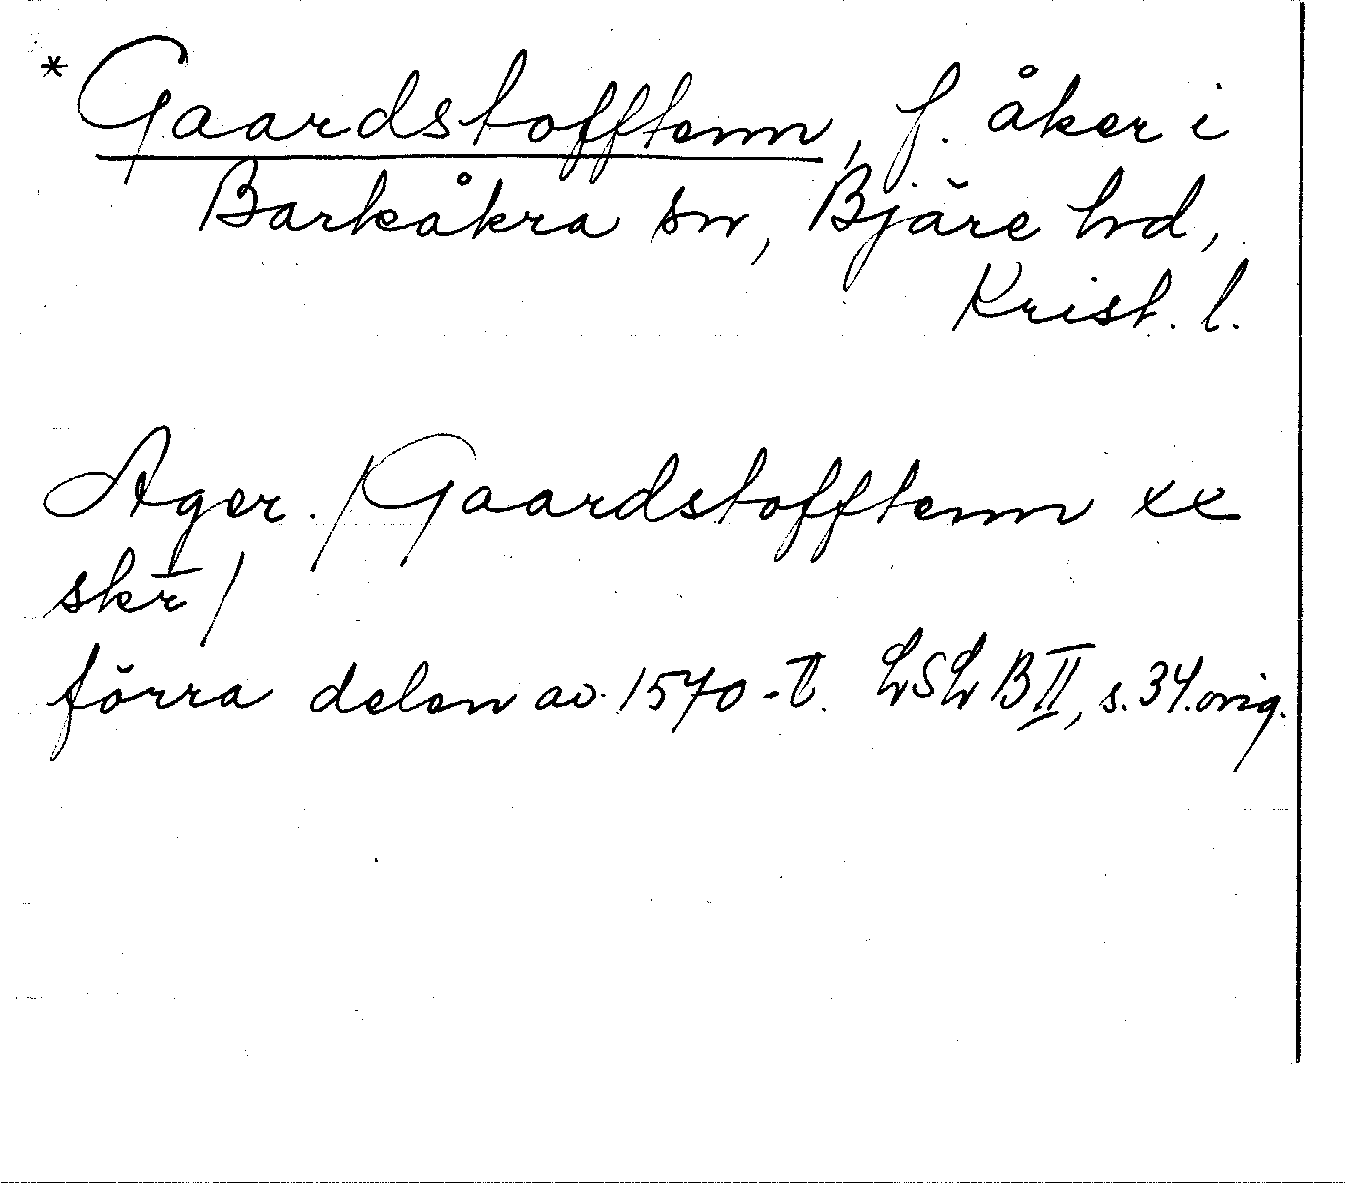 * Gaardstofftenn, f. åker i
Barkåkra sn, Bjäre hd,
Krist. l.
Ager. / Gaardstofftenn xx
skr /
förra delen av 1570-t. LSL B II, s. 34. orig.